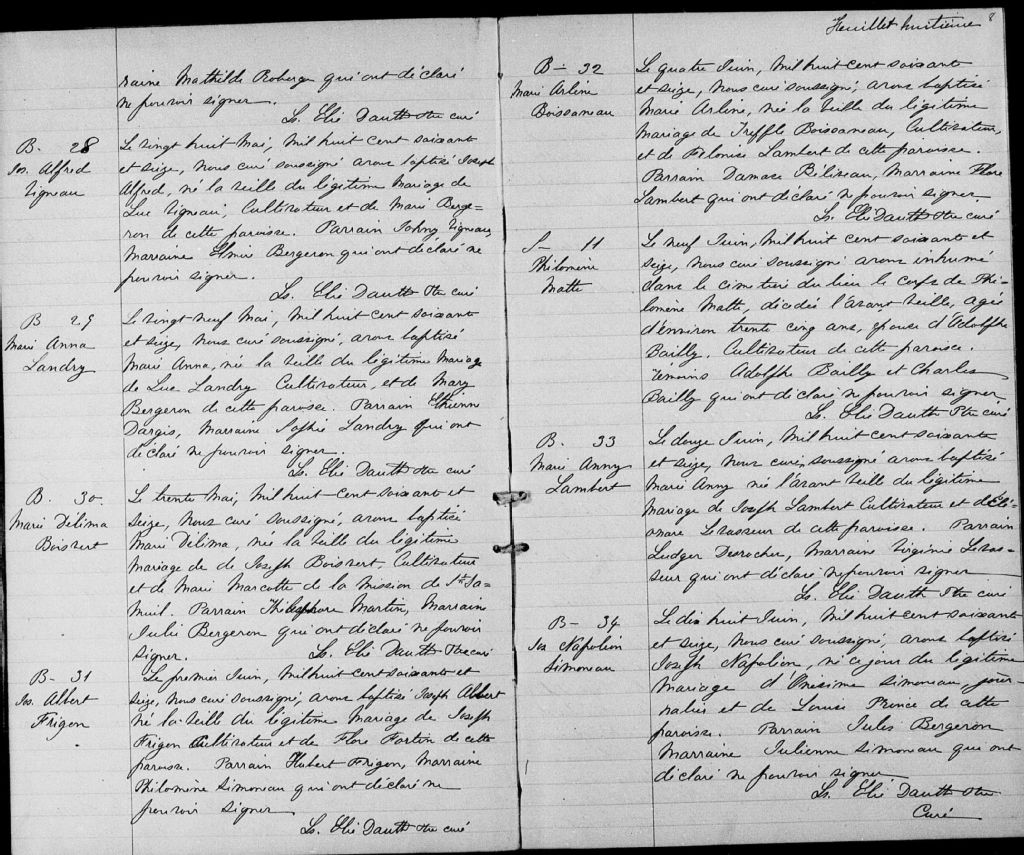 raine Mathilde Roberge qui ont déclaré
ne pouvoir signer.
Ls. Elie Dauth Ptre curé
B. 28
Jos. Alfred
Vigneau
Le vingt huit Mai, Mil huit cent soixante
et seize, Nous curé soussigné avons baptisé Joseph
Alfred, né la veille du légitime Mariage de
Luc Vigneau, Cultivateur et de Marie Berge-
ron de cette paroisse. Parrain Johny Vigneau,
Marraine Elmire Bergeron qui ont déclaré ne
pouvoir signer.
Ls. Elie Dauth Ptre curé
B 29
Marie Anna
Landry
Le vingt neuf Mai, Mil huit cent soixante
et seize, Nous curé soussigné, avons baptisé
Marie Anna, née la veille du légitime Mariage
de Luc Landry Cultivateur, et de Mary
Bergeron de cette paroisse. Parrain Etienne
Dargis, Marraine Sophie Landry qui ont
déclaré ne pouvoir signer.
Ls. Elie Dauth Ptre curé
B. 30
Marie Délima
Boisvert
Le trente Mai, Mil huit-cent soixante et
seize, Nous curé soussigné, avons baptisé
Marie Délima, née la veille du légitime
Mariage de de Joseph Boisvert, Cultivateur
et de Marie Marcotte de la Mission de St. Sa-
muel. Parrain Thélesphore Martin, Marraine
Julie Bergeron qui ont déclaré ne pouvoir
signer.
Ls. Elie Dauth Ptre curé
B- 31
Jos. Albert
Frigon
Le premier Juin, Mil huit cent soixante et
seize, Nous curé soussigné, avons baptisé Joseph Albert
né la veille du légitime Mariage de Joseph
Frigon Cultivateur et de Flore Fortin de cette
paroisse. Parrain Hubert Frigon, Marraine
Philomène Simoneau qui ont déclaré ne
pouvoir signer
Ls. Elie Dauth Ptre curé
Feuillet huitième 8
B- 32
Marie Arline
Boissoneau
Le quatre Juin, Mil huit cent soixante
et seize, Nous curé soussigné, avons baptisé
Marie Arline, née la veille du légitime
Mariage de Treffle Boissoneau, Cultivateur,
et de Felonise Lambert de cette paroisse.
Parrain Damase Béliveau, Marraine Flore
Lambert qui ont déclaré ne pouvoir signer.
Ls. Elie Dauth Ptre curé
S- 11
Philomène
Matte
Le neuf Juin, Mil huit cent soixante et
seize, Nous curé soussigné avons inhumé
dans le cimetière du lieu le corps de Phi-
lomène Matte, décédée l'avant veille, agée
d'environ trente cinq ans, épouse d'Adolphe
Bailly, Cultivateur de cette paroisse.
Témoins Adolphe Bailly et Charles
Bailly qui ont déclaré ne pouvoir signer.
Ls. Elie Dauth Ptre curé
B. 33
Marie Anny
Lambert
Le douze Juin, Mil huit cent soixante
et seize, Nous curé, soussigné avons baptisé
Marie Anny née l'avant veille du légitime
Mariage de Joseph Lambert Cultivateur et de Élé-
onore Levasseur de cette paroisse. Parrain
Ludger Desrocher, Marraine Virginie Levas-
seur qui ont déclaré ne pouvoir signer
Ls. Elie Dauth Ptre curé
B- 34
Jos Napoléon
Simoneau
Le dix huit Juin, Mil huit cent soixante
et seize, Nous curé soussigné, avons baptisé
Joseph Napoléon, né ce jour du légitime
mariage d'Onésime Simoneau, jour-
nalier et de Louise Prince de cette
paroisse. Parrain Jules Bergeron
Marraine Julienne Simoneau qui ont
déclaré ne pouvoir signer
Ls. Elie Dauth Ptre
Curé